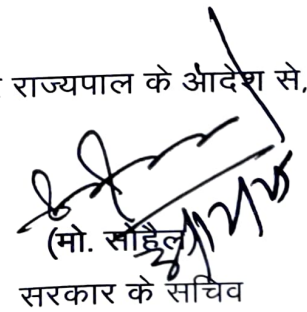 राज्यपाल के आदेश से,
(मो. सोहैल)
सरकार के सचिव